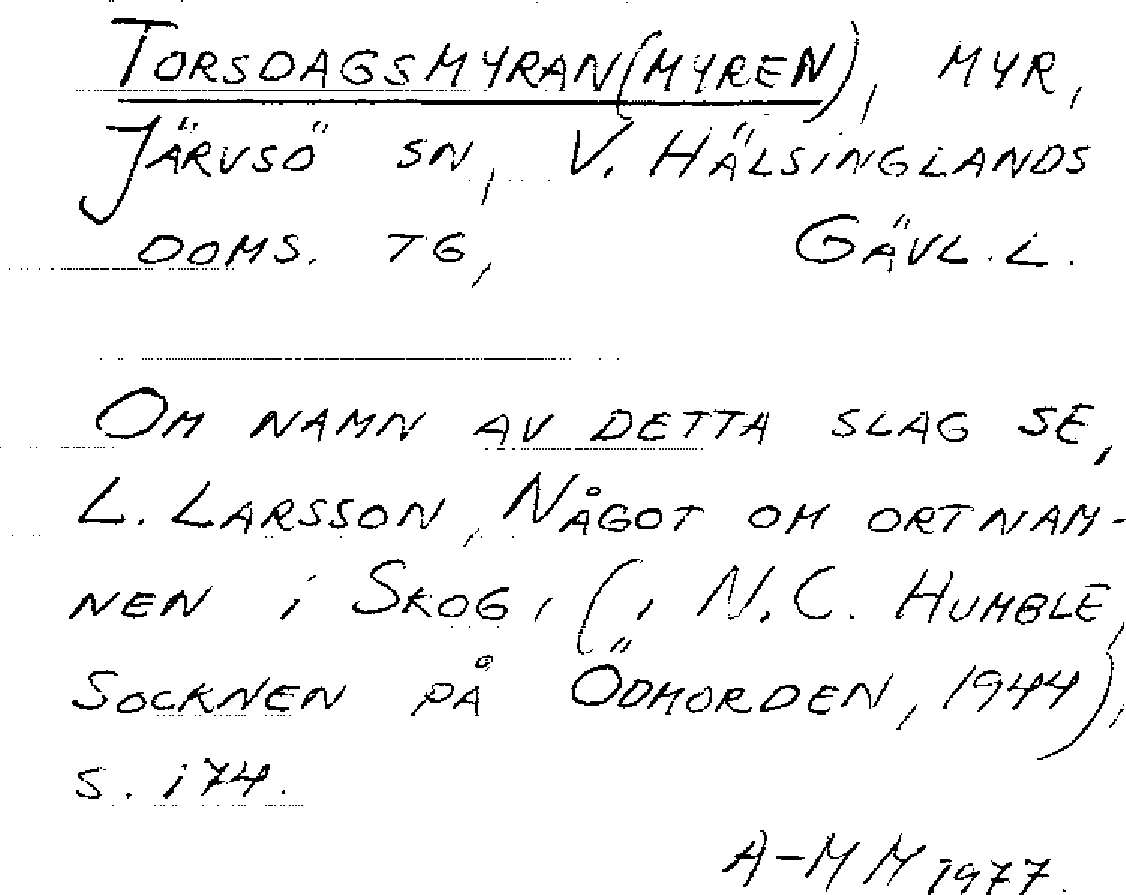 TORSDAGSMYRAN(MYREN), MYR,
JÄRVSÖ SN, V. HÄLSINGLANDS
DOMS. TG, GÄVL. L.
OM NAMN AV DETTA SLAG SE,
L. LARSSON, NÅGOT OM ORTNAM-
NEN i SKOG, (, N.C. HUMBLE,
SOCKNEN PÅ ÖDMORDEN, 1944),
S. 174.
A-MM 1977.